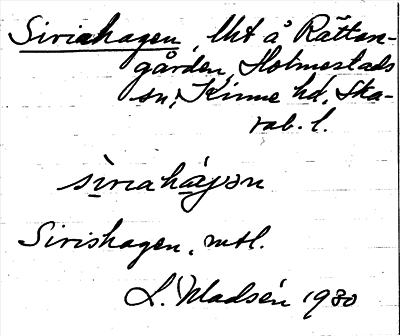 Siriahagen, lht å Råttan-
gården, Holmestads
sn, Kinne hd, Ska-
rab. l.
sìriahá̱γən
Sirishagen, mtl.
L. Madsén 1930